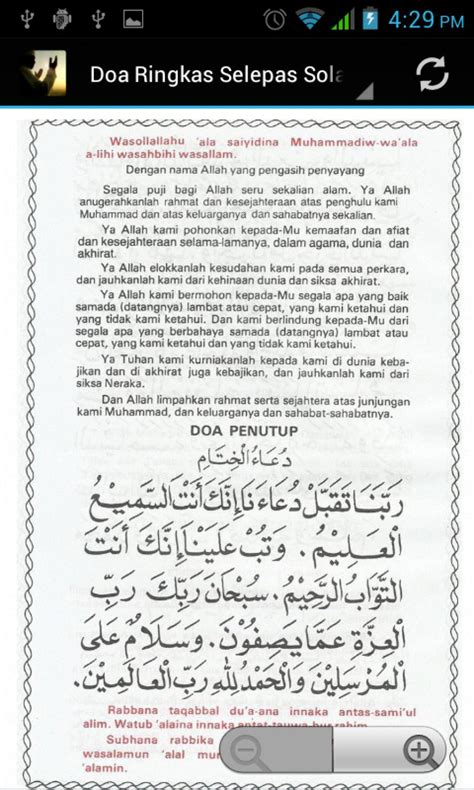 4:29 PM
Doa Ringkas Selepas Sola
Wasollallahu 'ala saiyidina Muhammadiw-wa'ala
a-lihi wasahbihi wasallam.
Dengan nama Allah yang pengasih penyayang
Segala puji bagi Allah seru sekalian alam. Ya Allah
anugerahkanlah rahmat dan kesejahteraan atas penghulu kami
Muhammad dan atas keluarganya dan sahabatnya sekalian.
Ya Allah kami pohonkan kepada-Mu kemaafan dan afiat
dan kesejahteraan selama-lamanya, dalam agama, dunia dan
akhirat.
Ya Allah elokkanlah kesudahan kami pada semua perkara,
dan jauhkanlah kami dari kehinaan dunia dan siksa akhirat.
Ya Allah kami bermohon kepada-Mu segala apa yang baik
samada (datangnya) lambat atau cepat, yang kami ketahui dan
yang tidak kami ketahui. Dan kami berlindung kepada-Mu dari
segala apa yang berbahaya samada (datangnya) lambat atau
cepat, yang kami ketahui dan yang tidak kami ketahui.
Ya Tuhan kami kurniakanlah kepada kami di dunia keba-
jikan dan di akhirat juga kebajikan, dan jauhkanlah kami dari
siksa Neraka.
Dan Allah limpahkan rahmat serta sejahtera atas junjungan
kami Muhammad, dan keluarganya dan sahabat-sahabatnya.
DOA PENUTUP
دُعَاءُ الْخِتَامِ
رَبَّنَا تَقَبَّلْ دُعَاءَنَا إِنَّكَ أَنْتَ السَّمِيعُ
الْعَلِيْمُ. وَتُبْ عَلَيْنَا إِنَّكَ أَنْتَ
التَّوَّابُ الرَّحِيْمُ. سُبْحَانَ رَبِّكَ رَبِّ
الْعِزَّةِ عَمَّا يَصِفُوْنَ. وَسَلَامٌ عَلَى
الْمُرْسَلِيْنَ وَالْحَمْدُ لِلّٰهِ رَبِّ الْعَالَمِيْنَ.
Rabbana taqabbal du'a-ana innaka antas-sami'ul
alim. Watub 'alaina innaka antat-tauwa bur rahim.
Subhana rabbika
wasalamun 'alal mur
'alamin.